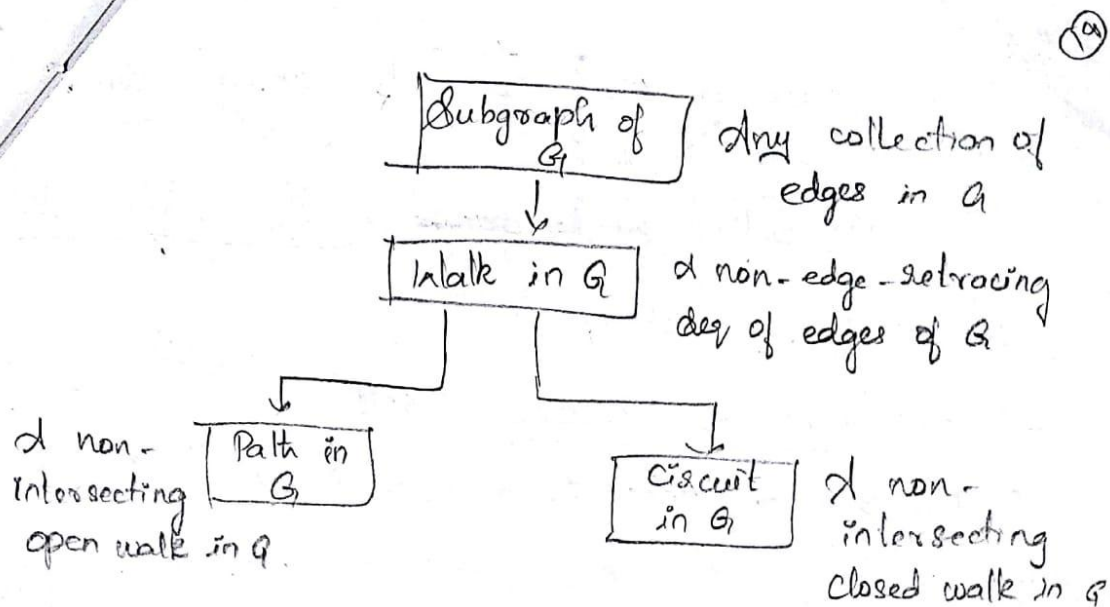 19
Subgraph of
G
Any collection of
edges in G
Walk in G
A non-edge-retracing
seq of edges of G
Path in
G
A non-
intersecting
open walk in G.
Circuit
in G
A non-
intersecting
closed walk in G